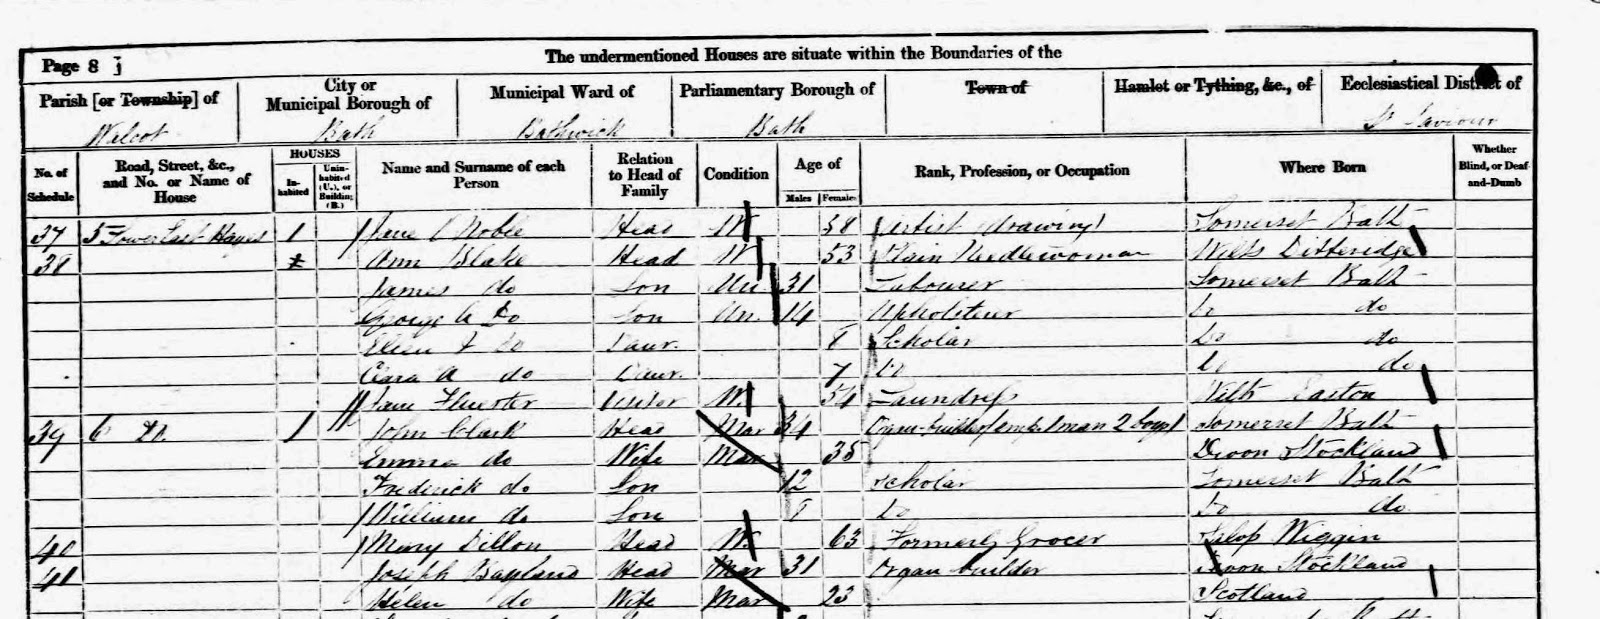 The undermentioned Houses are situate within the Boundaries of the
Page 8
Parish [or Township] of
City or Municipal Borough of
Municipal Ward of
Parliamentary Borough of
Town of
Hamlet or Tything, &c., of
Ecclesiastical District of
Walcot Bath Bathwick Bath St Saviour
No. of Schedule
Road, Street, &c., and No. or Name of House
HOUSES
Inhabited
Uninhabited (U.), or Building (B.)
Name and Surname of each Person
Relation to Head of Family
Condition
Age of
Males Females
Rank, Profession, or Occupation
Where Born
Whether Blind, or Deaf-and-Dumb
37 5 Lower East Hayes 1 Jane Noble Head W 58 Artist (drawing) Somerset Bath
38 Ann Blake Head W 53 Plain Needlewoman Wilts Ditteridge
James do Son Un 31 Labourer Somerset Bath
George A Do Son Un. 14 Upholsterer Do do
Do Daur. 8 Scholar Do do
Clara A do Daur. 7 Do Do do
Jane Visitor W 54 Laundress Wilts Easton
39 6 Do. 1 John Clark Head Mar 34 Organ builder (emp. 1 man 2 boys) Somerset Bath
Emma do Wife Mar 35 Devon Stockland
Frederick do Son 12 Scholar Somerset Bath
William do Son 8 Do Do do
40 Mary Dillon Head W 63 Formerly Grocer Salop Wiggin
41 Joseph Bayland Head Mar 31 Organ builder Devon Stockland
Helen do Wife Mar 23 Scotland